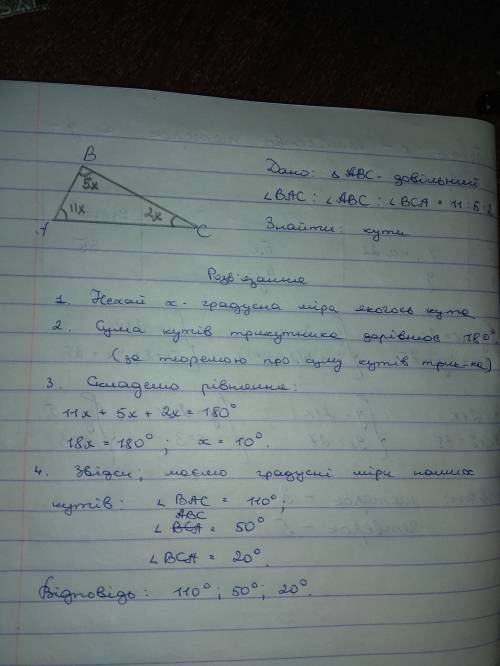 B
5x
11x
2x
A
C
Дано: △ABC - довільний
∠BAC : ∠ABC : ∠BCA = 11:5:2
Знайти: кути
Розв'язання
1. Нехай x - градусна міра якогось кута
2. Сума кутів трикутника дорівнює 180°.
(за теоремою про суму кутів трик-ка)
3. Складемо рівняння:
11x + 5x + 2x = 180°
18x = 180° ; x = 10°.
4. Звідси, маємо градусні міри наших
кутів: ∠BAC = 110°;
ABC
∠BCA = 50°
∠BCA = 20°.
Відповідь: 110°; 50°; 20°.